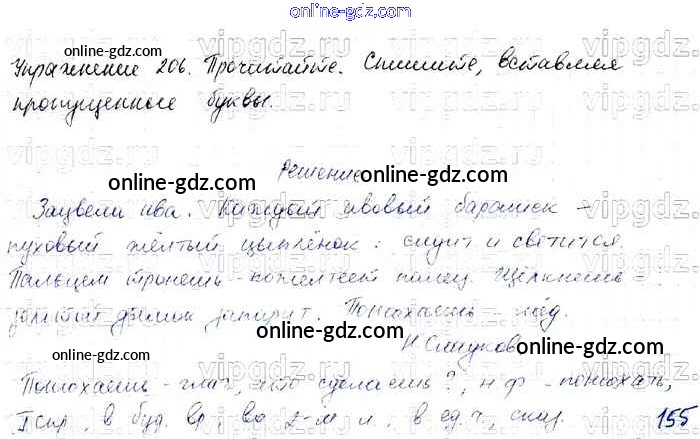 online-gdz.com
online-gdz.com
Упражнение 206. Прочитайте. Спишите, вставляя
пропущенные буквы.
online-gdz.com
Решение
online-gdz.com
Зацвела ива. Каждый ивовый барашек -
online-gdz.com
пуховый жёлтый цыплёнок: сидит и светится.
Пальцем тронешь - пожелтеет палец. Щёлкнешь -
online-gdz.com
золотый дымок запарит. Понюхаешь - мёд.
online-gdz.com
Н. Сладков
online-gdz.com
Понюхаешь - глаг., что сделаешь?, н.ф - понюхать,
I спр., в буд. вр., во 2-м л., в ед. ч.
online-gdz.com
155